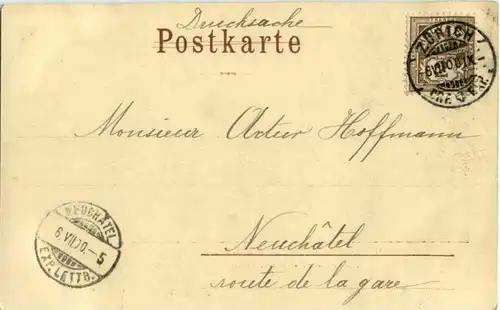 Drucksache
Postkarte
ZÜRICH
Monsieur Artur Hoffmann
NEUCHÂTEL
6 VII 00.-5
EXP. LETTR.
Neuchâtel
route de la gare